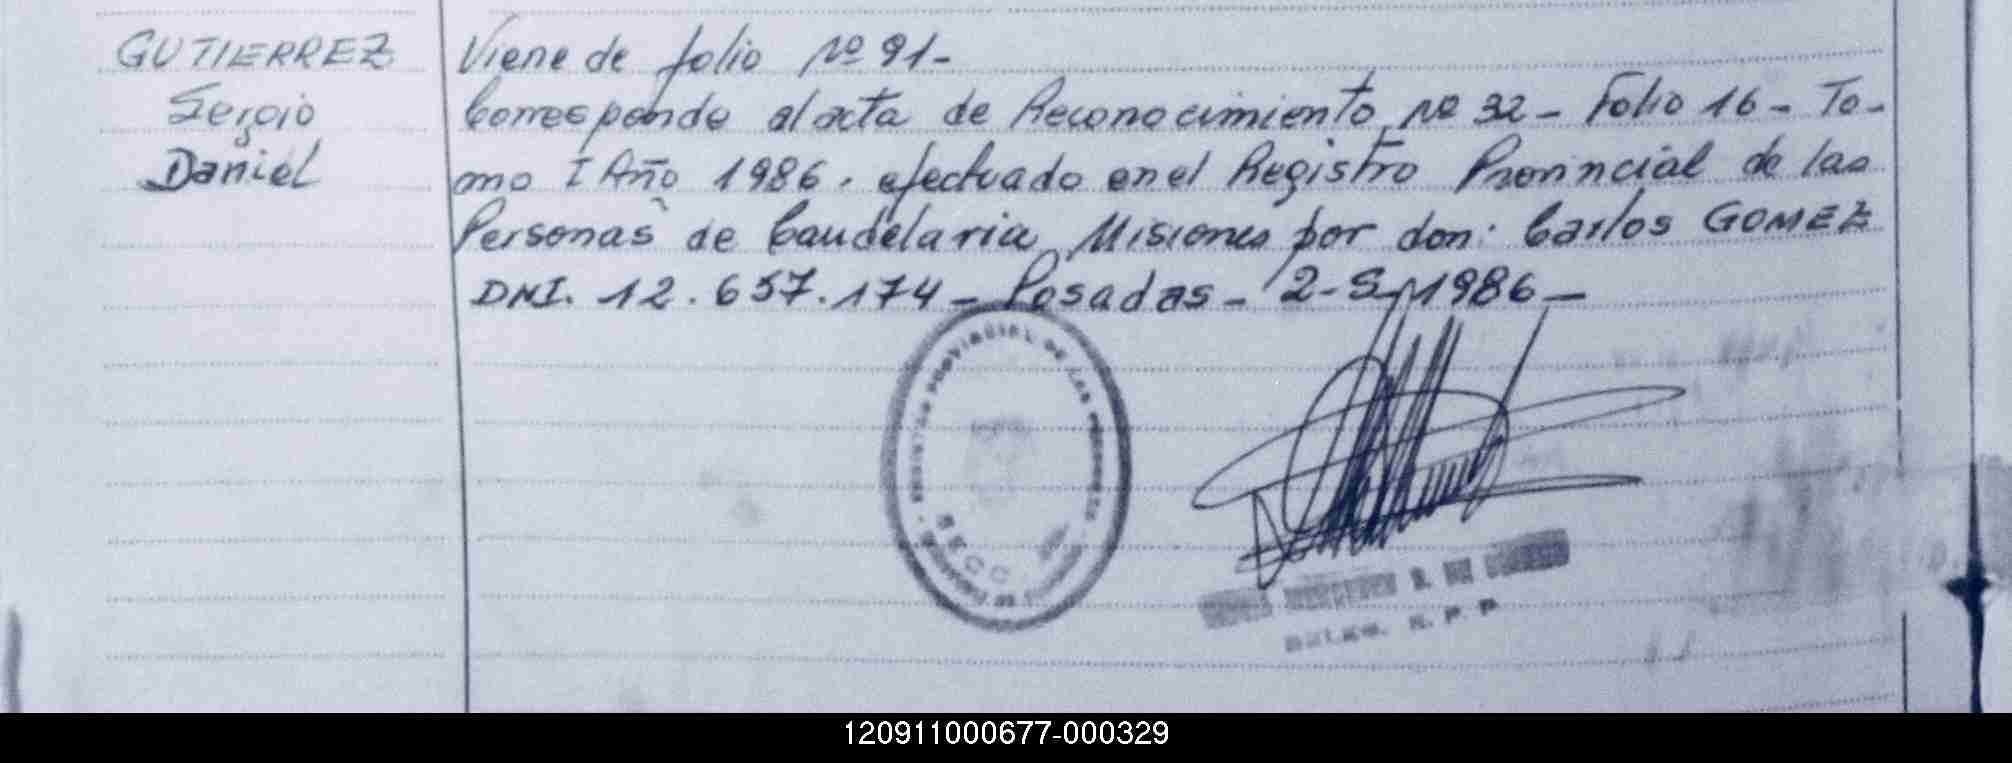 GUTIERREZ
Sergio
Daniel
Viene de folio Nº 91-
Corresponde al acta de Reconocimiento Nº 32 - Folio 16 - To-
mo I Año 1986. efectuado en el Registro Provincial de las
Personas de Candelaria Misiones por don: Carlos GOMEZ
DNI. 12.657.174 - Posadas - 2-S-1986 -
REGISTRO PROVINCIAL DE LAS PERSONAS
SECC
R. P. P.
120911000677-000329